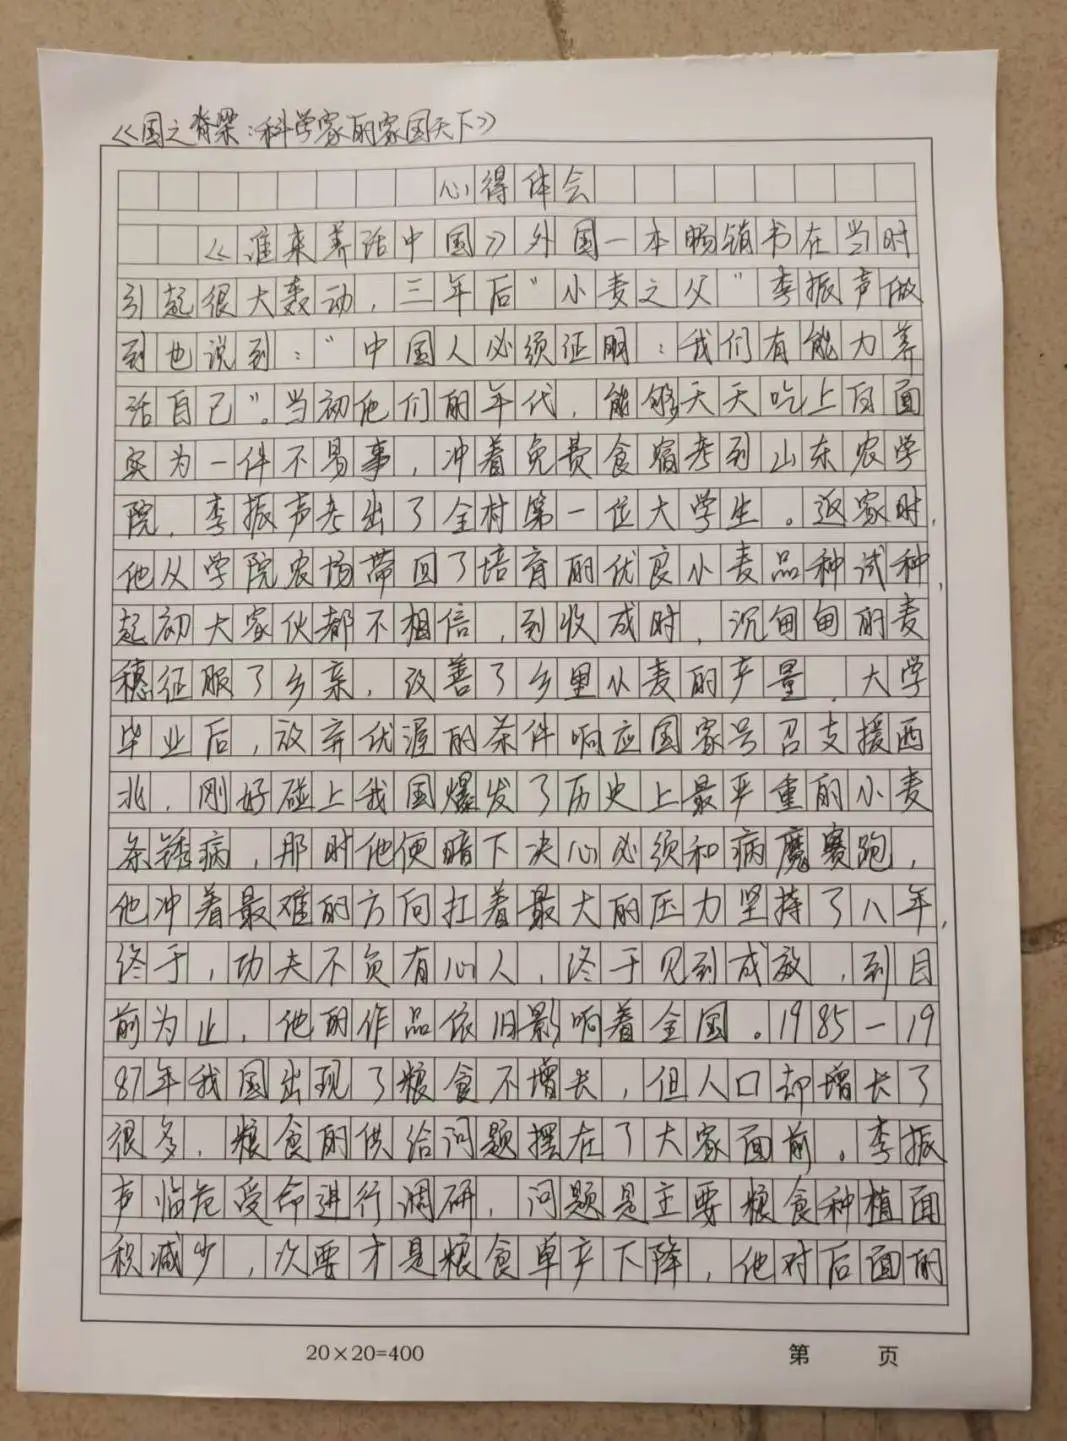 《国之脊梁:科学家的家国天下》
心得体会
《谁来养活中国》外国一本畅销书在当时
引起很大轰动,三年后“小麦之父”李振声做
到也说到:“中国人必须证明:我们有能力养
活自己”。当初他们的年代,能够天天吃上白面
实为一件不易事,冲着免费食宿考到山东农学
院,李振声考出了全村第一位大学生。返家时,
他从学院农场带回了培育的优良小麦品种试种,
起初大家伙都不相信,到收成时,沉甸甸的麦
穗征服了乡亲,改善了乡里小麦的产量.大学
毕业后,放弃优渥的条件响应国家号召支援西
北,刚好碰上我国爆发了历史上最严重的小麦
条锈病,那时他便暗下决心必须和病魔赛跑,
他冲着最难的方向扛着最大的压力坚持了八年,
终于,功夫不负有心人,终于见到成效,到目
前为止,他的作品依旧影响着全国。1985—19
87年我国出现了粮食不增长,但人口却增长了
很多,粮食的供给问题摆在了大家面前。李振
声临危受命进行调研,问题是主要粮食种植面
积减少,次要才是粮食单产下降,他对后面的
20×20=400
第 页